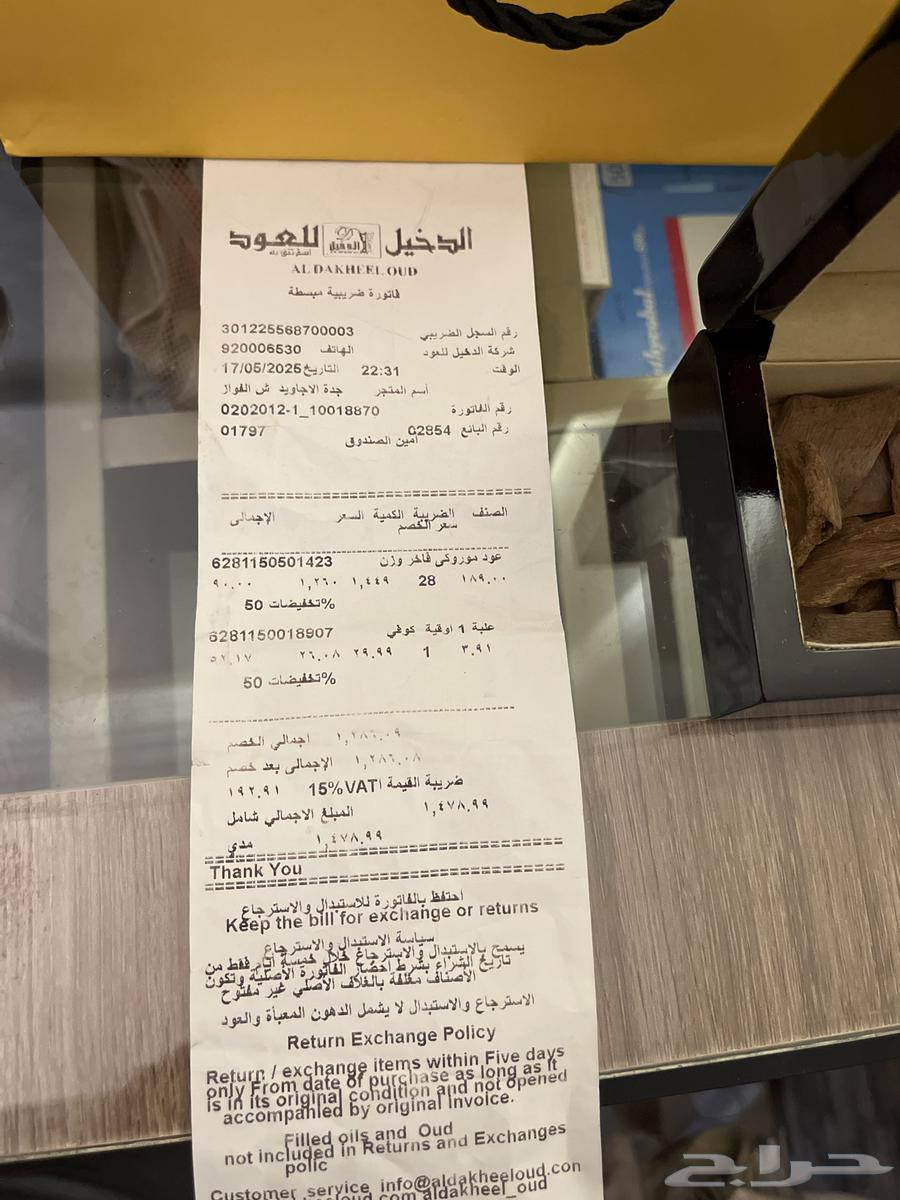 الدخيل للعود
AL DAKHEEL OUD
فاتورة ضريبية مبسطة
رقم السجل الضريبي 301225568700003
شركة الدخيل للعود الهاتف 920006530
الوقت 22:31 التاريخ 17/05/2025
أسم المتجر جدة الاجاويد ش الفوار
رقم الفاتورة 0202012-1_10018870
رقم البائع 02854 01797
أمين الصندوق
الصنف الضريبة الكمية السعر الإجمالي
سعر الخصم
عود موروكي فاخر وزن 6281150501423
١٨٩.٠٠ 28 ١,٤٤٩ ١,٢٦٠ ٩٠.٠٠
%تخفيضات 50
علبة 1 اوقية كوفي 6281150018907
٣.٩١ 1 ٢٩.٩٩ ٢٦.٠٨ ٥٢.١٧
%تخفيضات 50
اجمالي الخصم ١,٢٨٦.٠٩
الإجمالى بعد خصم ١,٢٨٦.٠٨
ضريبة القيمة ا 15%VAT ١٩٢.٩١
المبلغ الاجمالي شامل ١,٤٧٨.٩٩
مدي ١,٤٧٨.٩٩
Thank You
أحتفظ بالفاتورة للاستبدال والاسترجاع
Keep the bill for exchange or returns
سياسة الاستبدال والاسترجاع
يسمح بالاستبدال والاسترجاع خلال خمسة أيام فقط من
تاريخ الشراء بشرط احضار الفاتورة الأصلية وتكون
الأصناف مغلفة بالغلاف الأصلي غير مفتوح
الاسترجاع والاستبدال لا يشمل الدهون المعبأة والعود
Return Exchange Policy
Return / exchange items within Five days
only From date of purchase as long as it
is in its original condition and not opened
accompanied by original invoice.
Filled oils and Oud
not included in Returns and Exchanges
polic
Customer service info@aldakheeloud.con
eeloud.com aldakheel_oud
حراج